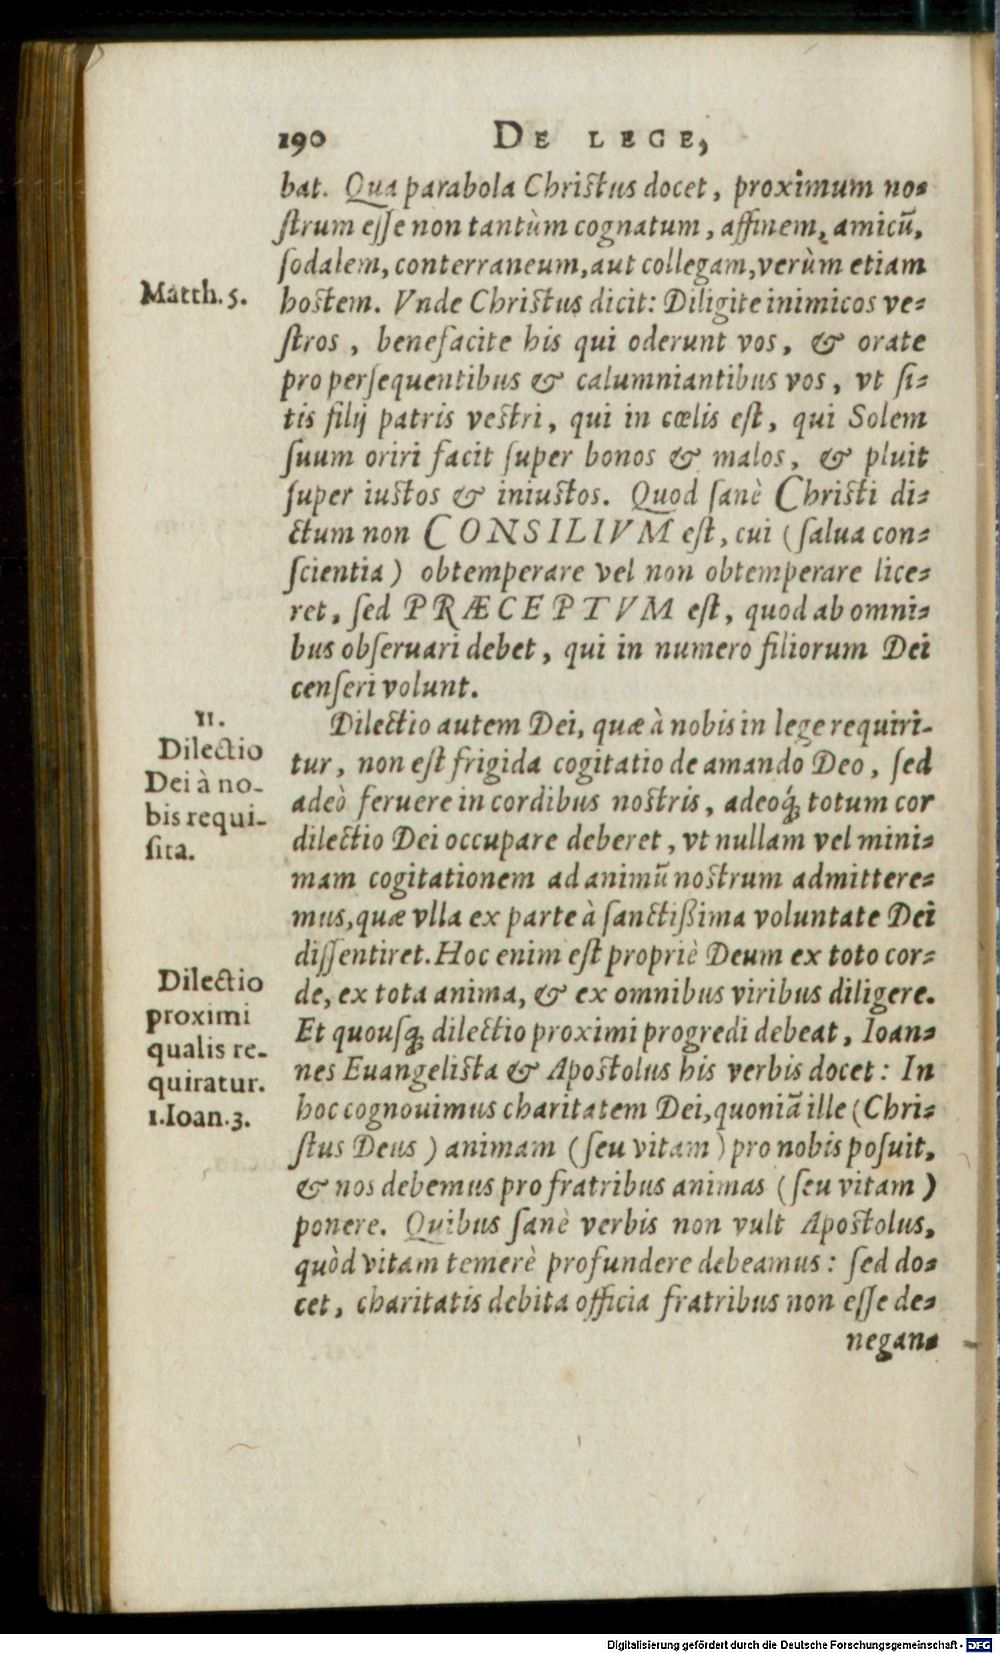 190 DE LEGE,
bat. Qua parabola Christus docet, proximum no-
strum esse non tantùm cognatum, affinem, amicū,
sodalem, conterraneum, aut collegam, verùm etiam
Matth. 5.
hostem. Vnde Christus dicit: Diligite inimicos ve-
stros, benefacite his qui oderunt vos, & orate
pro persequentibus & calumniantibus vos, vt si-
tis filij patris vestri, qui in cœlis est, qui Solem
suum oriri facit super bonos & malos, & pluit
super iustos & iniustos. Quod sanè Christi di-
ctum non CONSILIVM est, cui (salua con-
scientia) obtemperare vel non obtemperare lice-
ret, sed PRÆCEPTVM est, quod ab omni-
bus obseruari debet, qui in numero filiorum Dei
censeri volunt.
II.
Dilectio
Dei à no-
bis requi-
sita.
Dilectio autem Dei, quæ à nobis in lege requiri-
tur, non est frigida cogitatio de amando Deo, sed
adeò feruere in cordibus nostris, adeoq́; totum cor
dilectio Dei occupare deberet, vt nullam vel mini-
mam cogitationem ad animū nostrum admittere-
mus, quæ vlla ex parte à sanctißima voluntate Dei
dissentiret. Hoc enim est propriè Deum ex toto cor-
de, ex tota anima, & ex omnibus viribus diligere.
Dilectio
proximi
qualis re-
quiratur.
1. Ioan. 3.
Et quousq; dilectio proximi progredi debeat, Ioan-
nes Euangelista & Apostolus his verbis docet: In
hoc cognouimus charitatem Dei, quoniā ille (Chri-
stus Deus) animam (seu vitam) pro nobis posuit,
& nos debemus pro fratribus animas (seu vitam)
ponere. Quibus sanè verbis non vult Apostolus,
quòd vitam temerè profundere debeamus: sed do-
cet, charitatis debita officia fratribus non esse de-
negan-
Digitalisierung gefördert durch die Deutsche Forschungsgemeinschaft - DFG